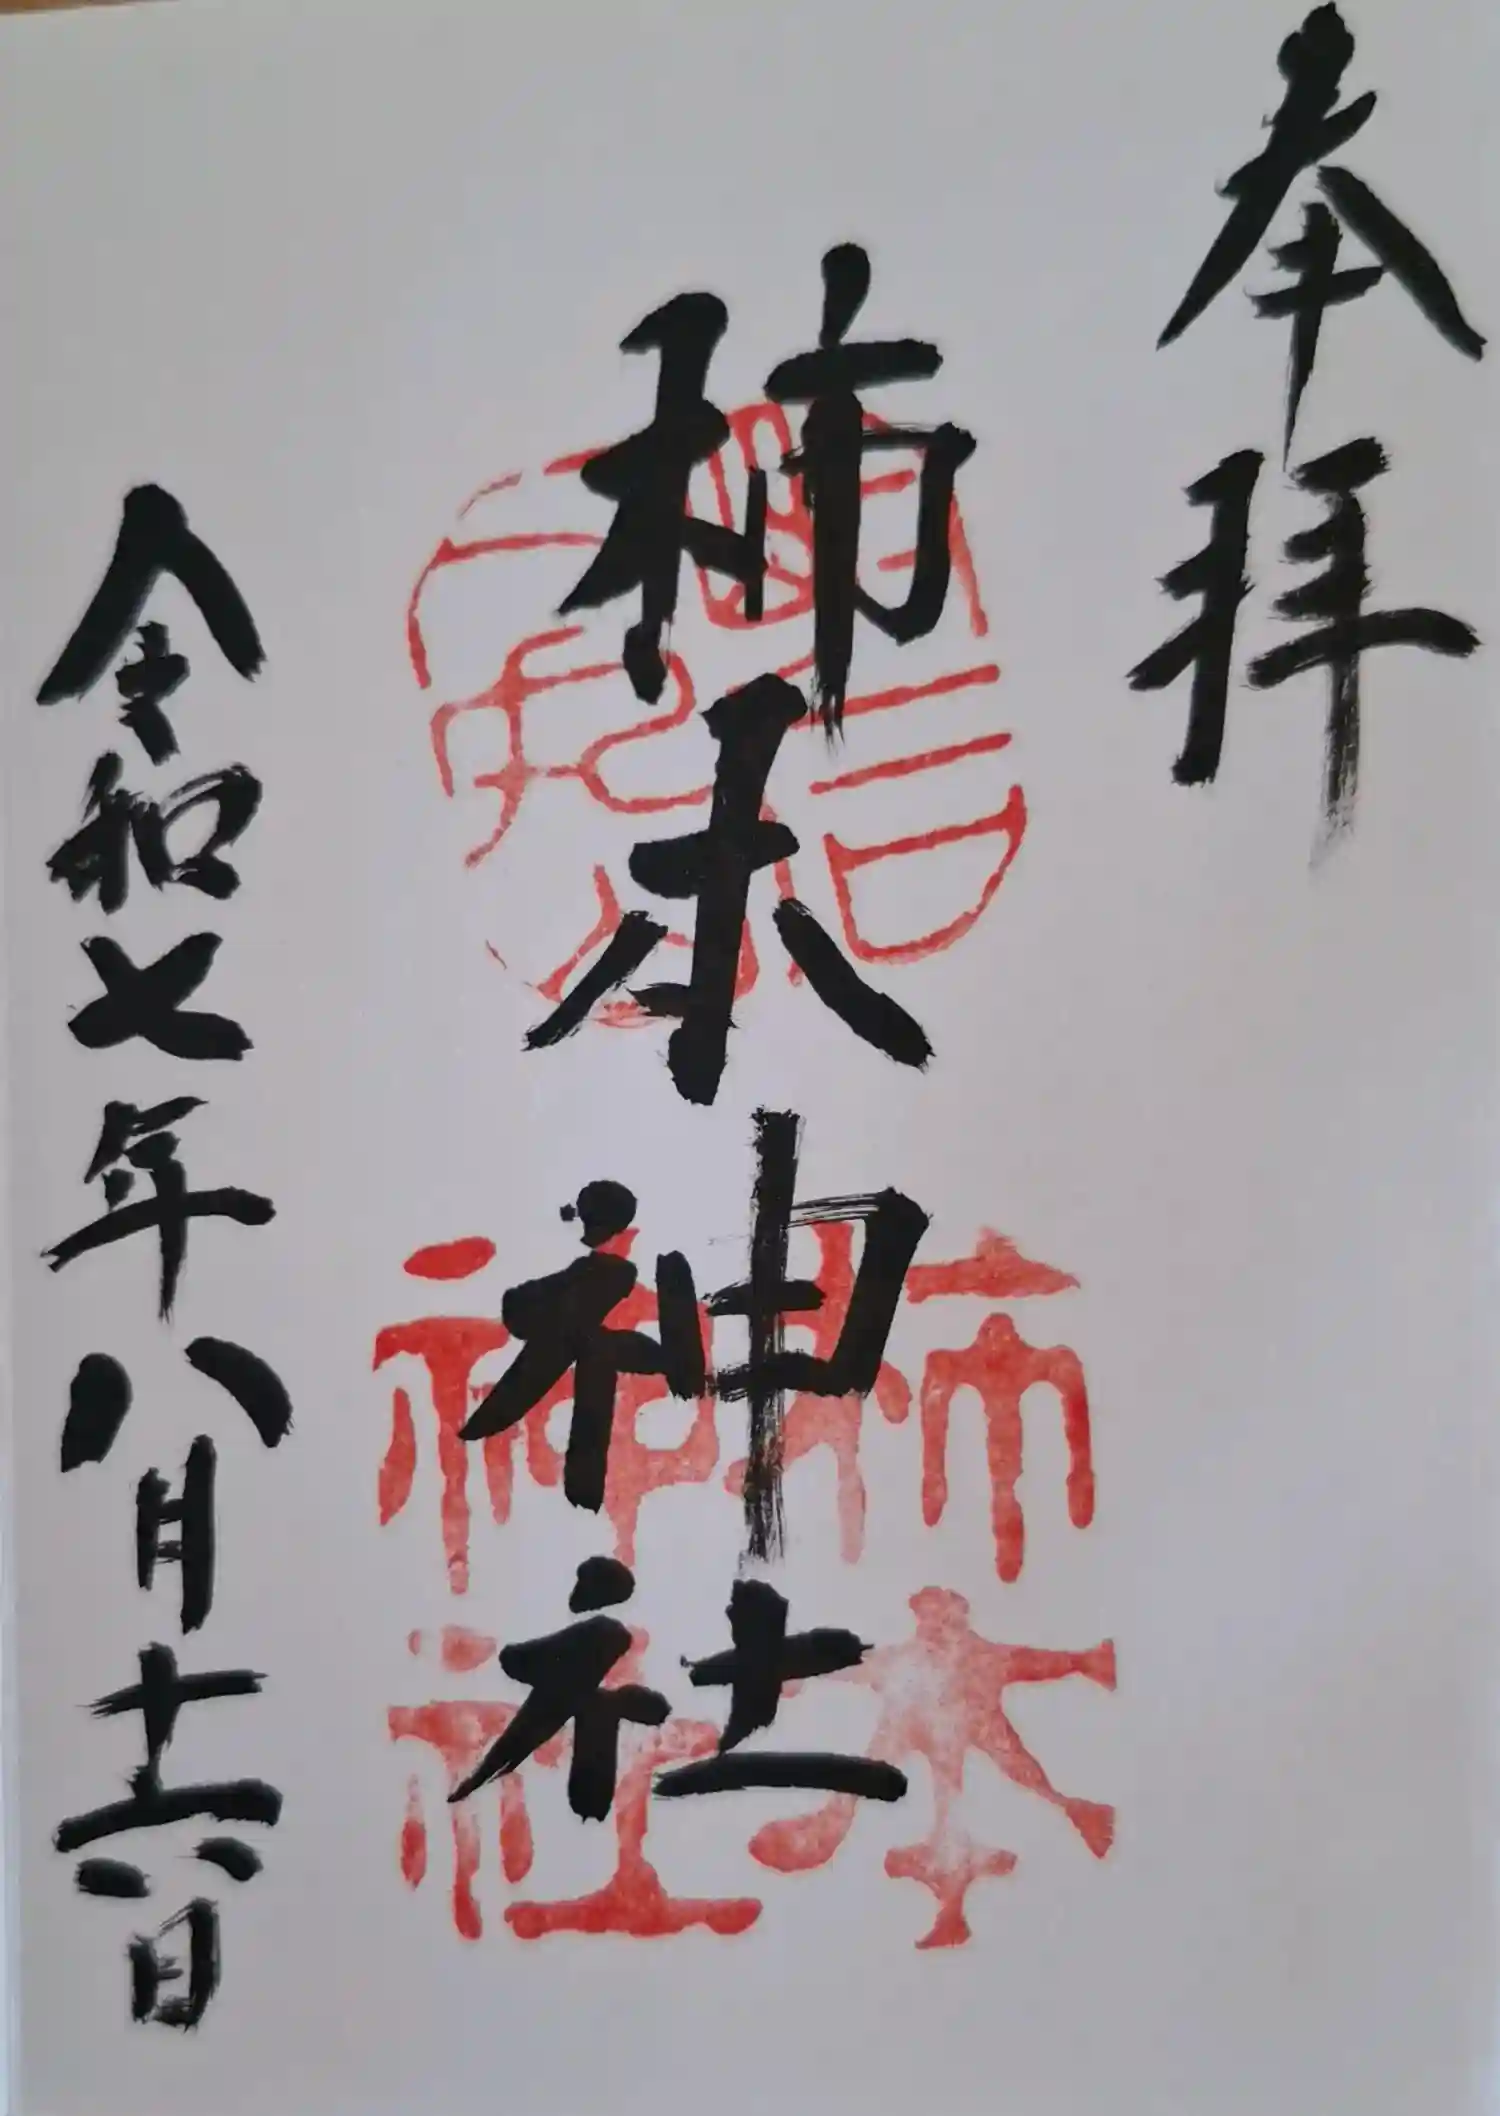 奉拝
柿本神社
柿本
神社
令和七年八月十六日